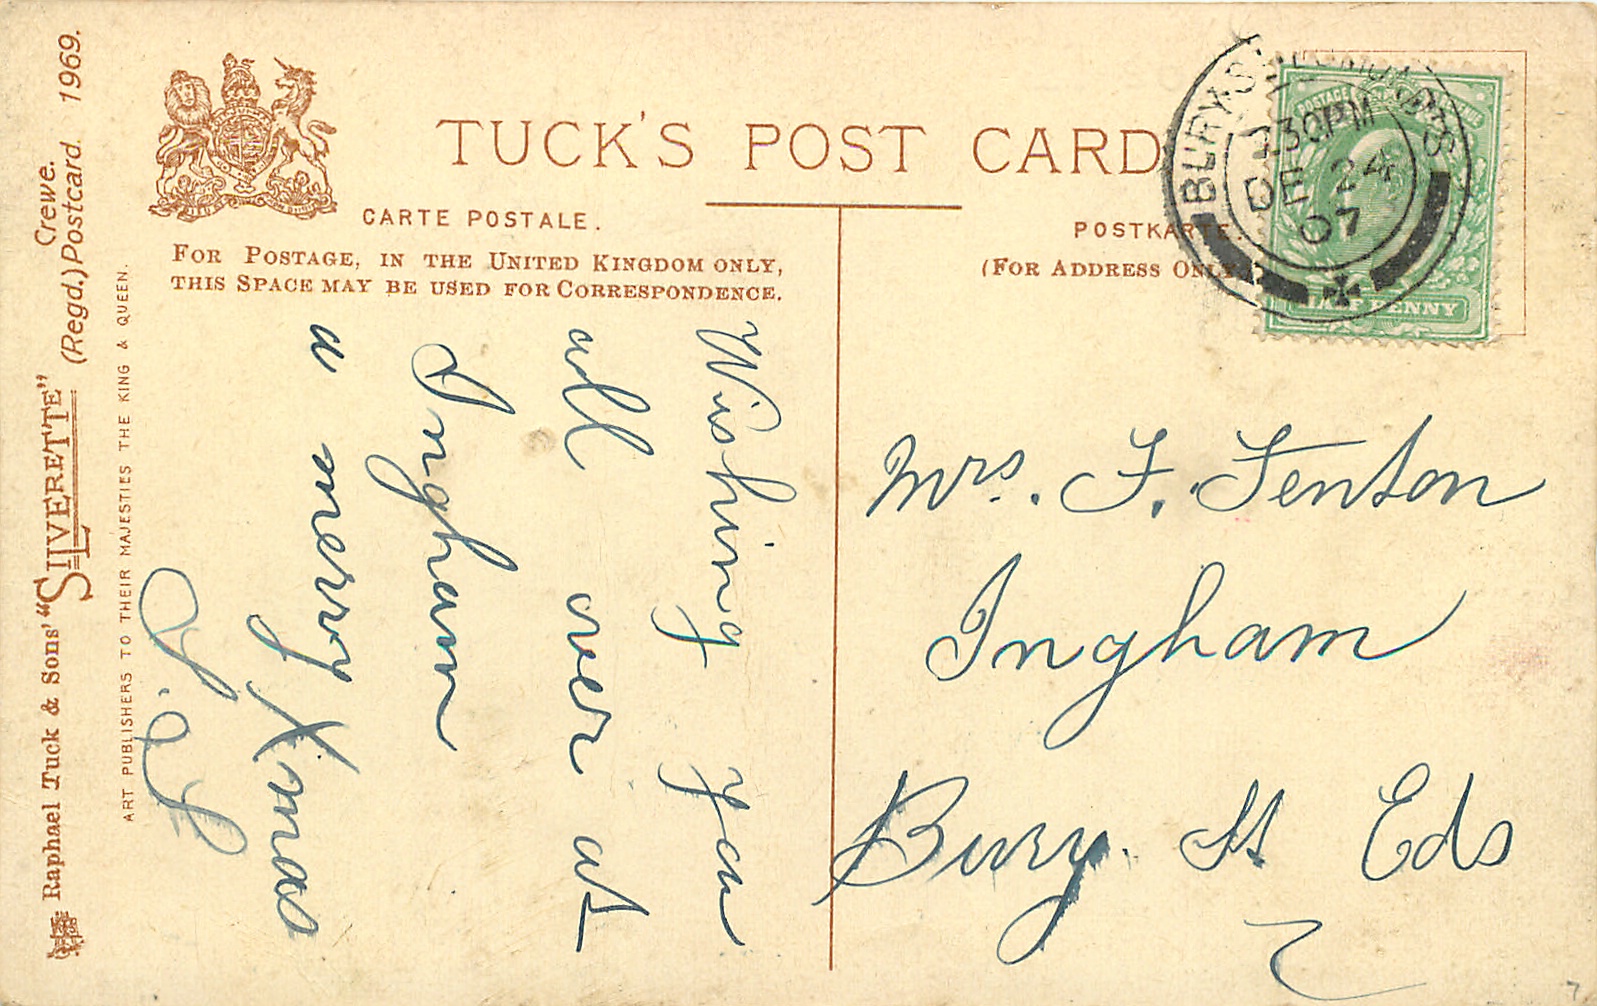 TUCK'S POST CARD
CARTE POSTALE.
POSTKARTE.
FOR POSTAGE, IN THE UNITED KINGDOM ONLY,
THIS SPACE MAY BE USED FOR CORRESPONDENCE.
(FOR ADDRESS ONLY
BURY ST EDMUNDS
230PM
DE 24
07
HALF PENNY
Wishing you
all over at
Ingham
a merry
Xmas
Mrs. F. Fenton
Ingham
Bury St Eds
Raphael Tuck & Sons' "SILVERETTE" Crewe. (Regd.) Postcard 1969.
ART PUBLISHERS TO THEIR MAJESTIES THE KING & QUEEN.